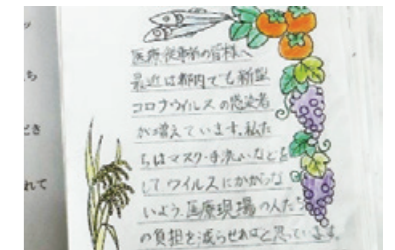 医療従事者の皆様へ
最近は都内でも新型
コロナウイルスの感染者
が増えています。私た
ちはマスク・手洗いなどを
してウイルスにかからな
いよう、医療現場の人たち
の負担を減らせればと思っています。
ち
だき
れて